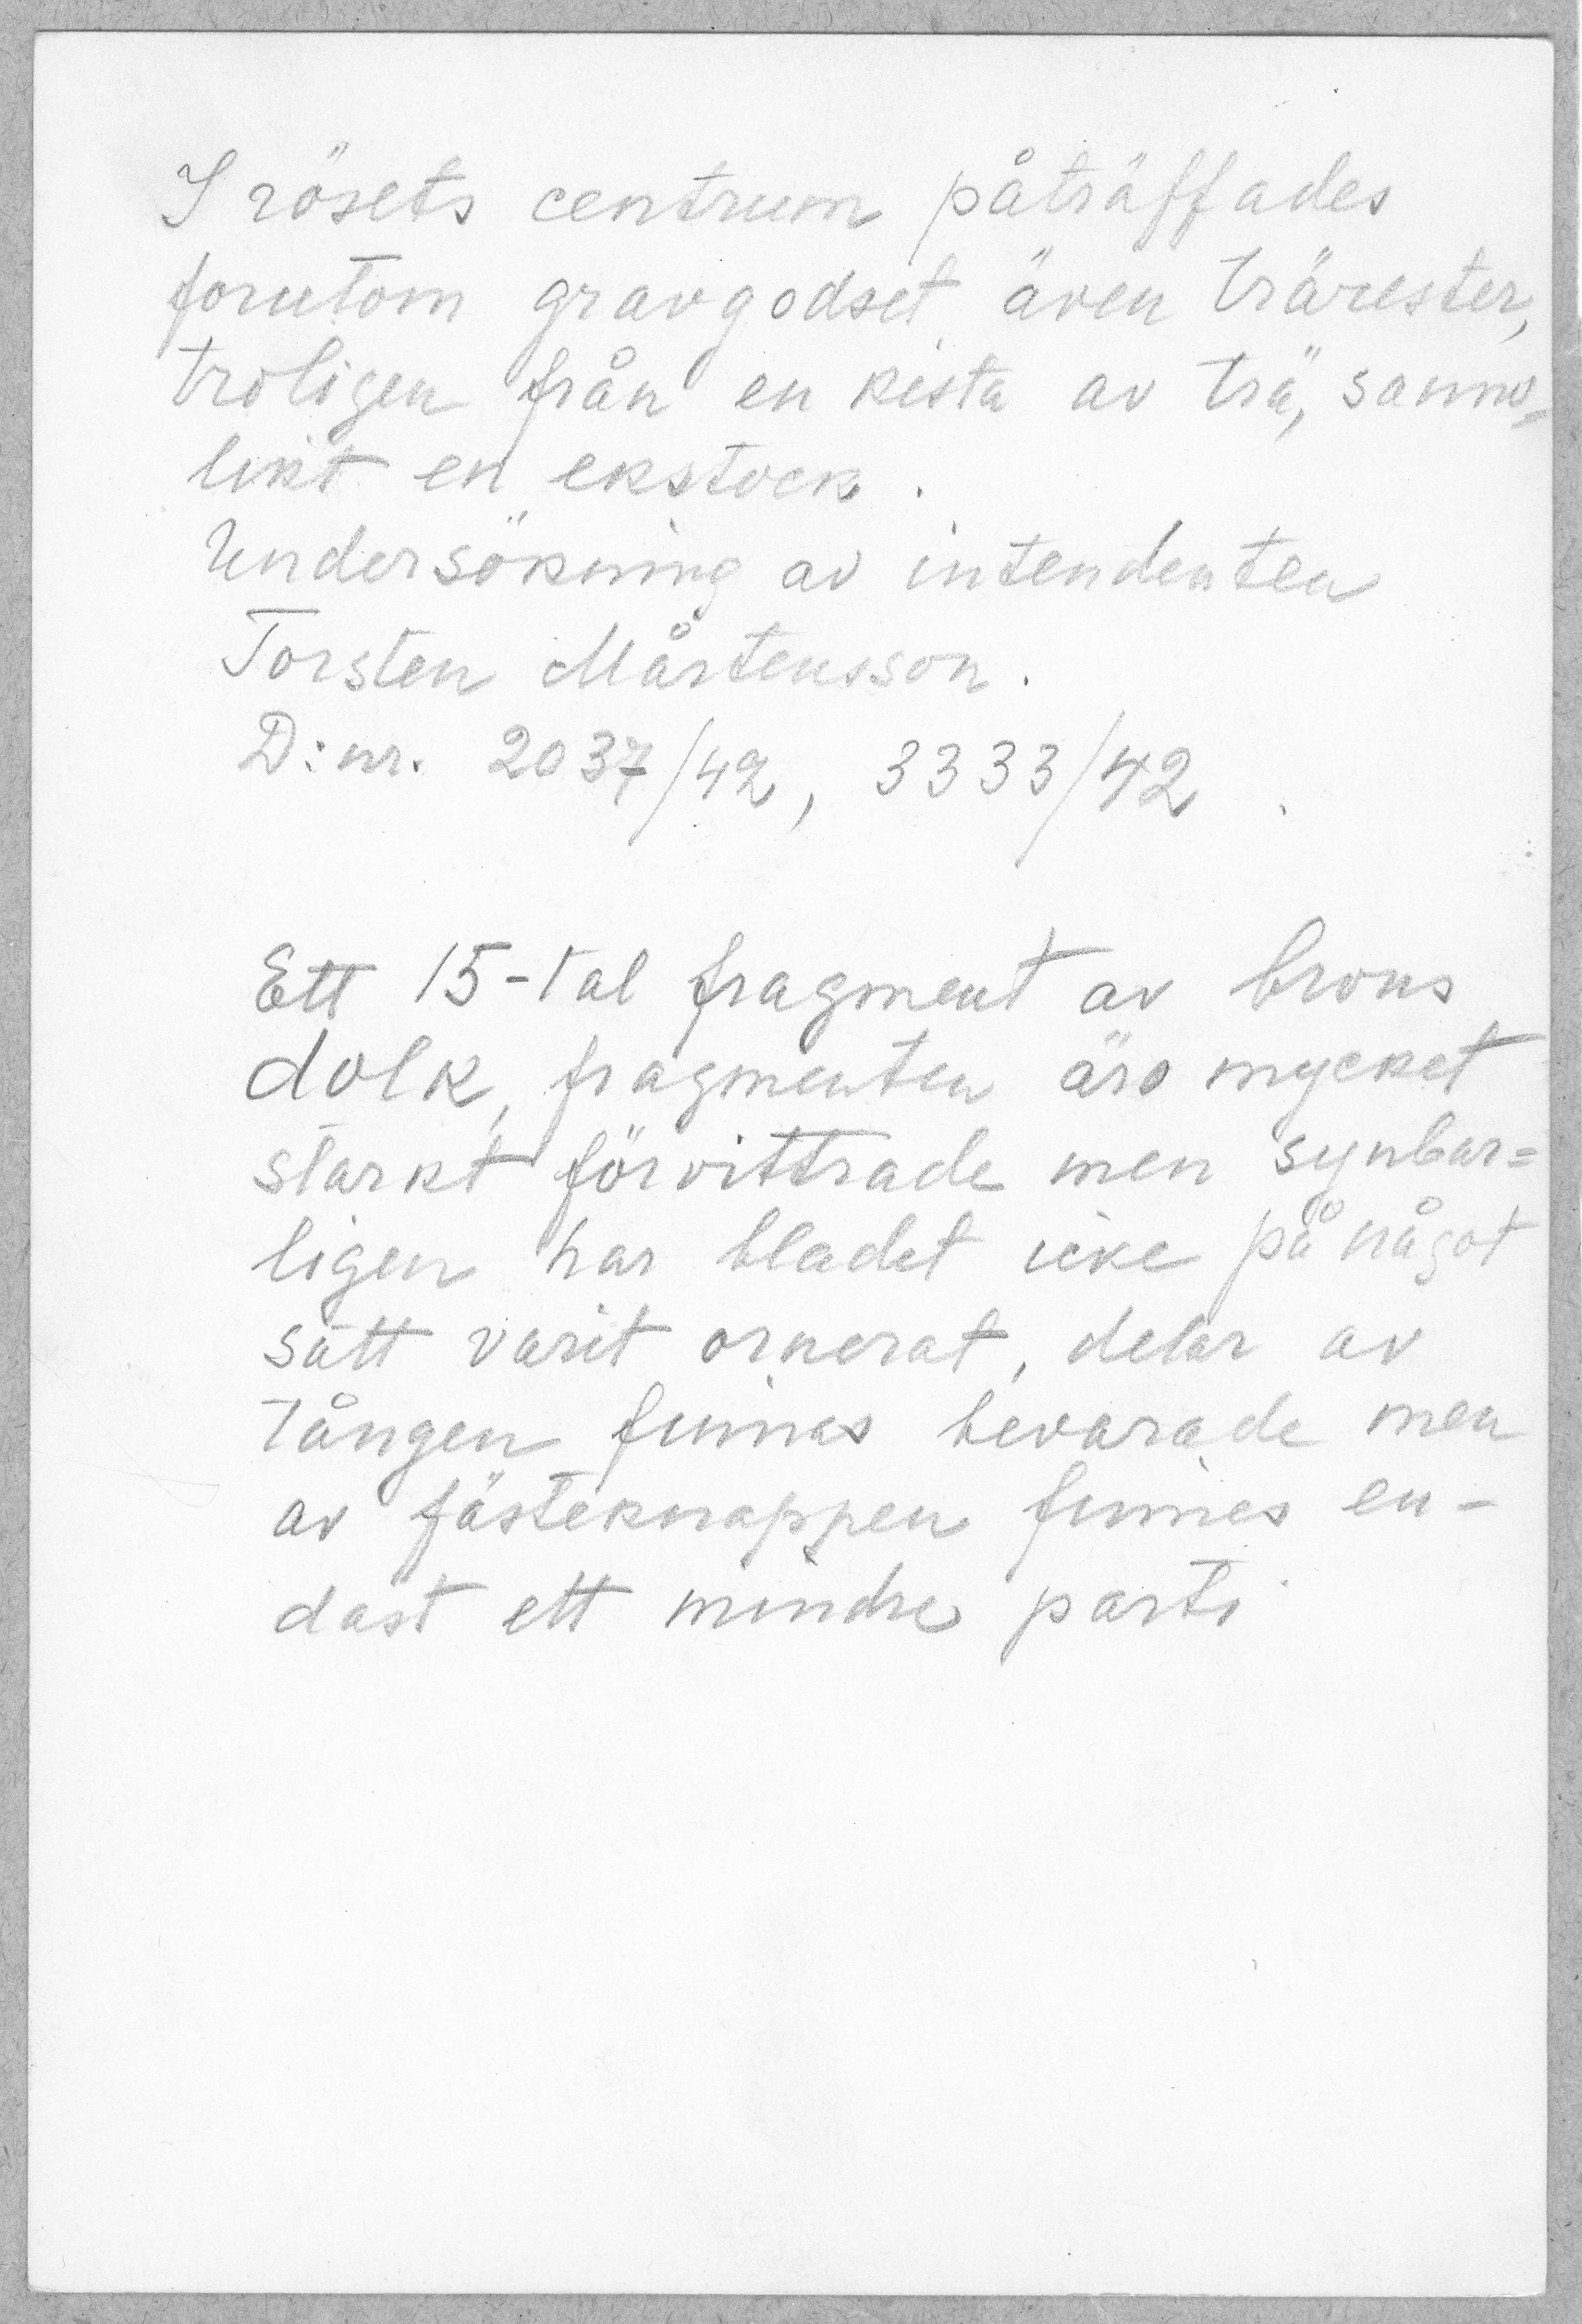 I rösets centrum påträffades
forutom gravgodset även trärester,
troligen från en kista av trä, sanno=
likt en ekstock.
Undersökning av intendenten
Torsten Mårtensson.
D:nr. 2037/42, 3333/42
Ett 15-tal fragment av brons
dolk, fragmenten äro mycket
starkt förvittrade men synbar=
ligen har bladet icke på något
sätt varit ornerat, delar av
tången finnas bevarade men
av fästeknappen finnes en-
dast ett mindre parti